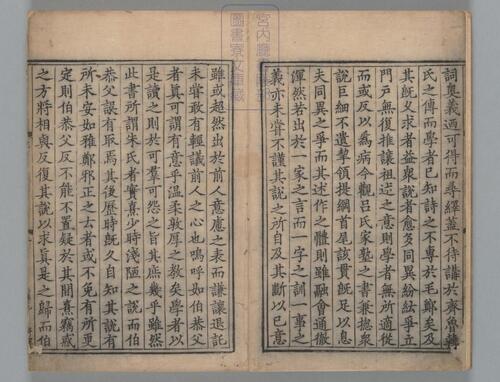 詞奧義迺可得而尋繹蓋不待講於齊魯韓
氏之傳而學者已知詩之不專於毛鄭矣及
其既乆求者益衆說者愈多同異紛紜爭立
門戶無復推讓祖述之意則學者無所適從
而或反以爲病今觀吕氏家塾之書兼揔衆
說巨細不遺挈領提綱首尾該貫既足以息
夫同異之爭而其述作之體則雖融會通徹
渾然若出於一家之言而一字之訓一事之
義亦未甞不謹其說之所自及其斷以己意
雖或超然出於前人意慮之表而謙讓退託
未甞敢有輕議前人之心也嗚呼如伯恭父
者眞可謂有意乎温柔敦厚之教矣學者以
是讀之則於可羣可怨之旨其庶幾乎雖然
此書所謂朱氏者實熹少時淺陋之說而伯
恭父誤有取焉其後歷時既乆自知其說有
所未安如雅鄭邪正之云者或不免有所更
定則伯恭父反不能不置疑於其間熹竊惑
之方將相與反復其說以求眞是之歸而伯
宮内廳
圖書寮文庫藏